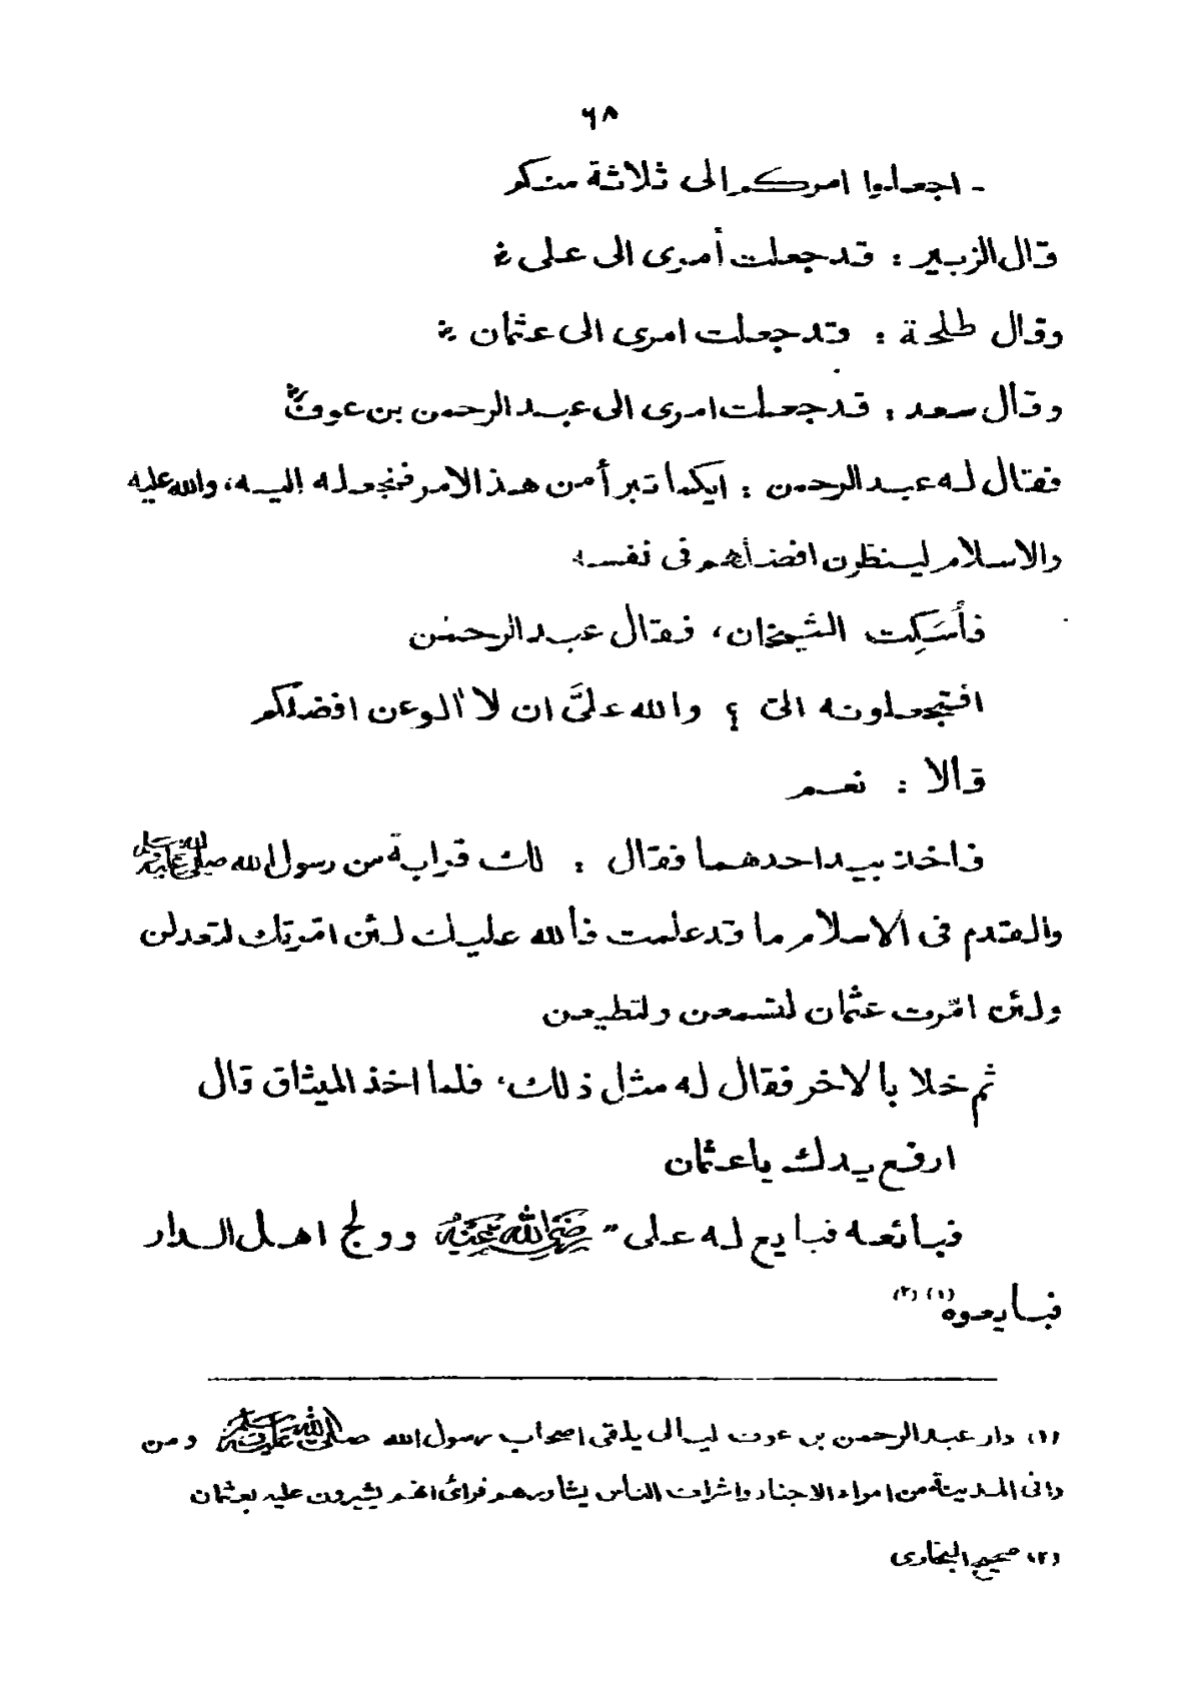 ٦٨
- اجعلوا امركم الى ثلاثة منكم
قال الزبير : قد جعلت أمرى الى على رض
وقال طلحة : قد جعلت امرى الى عثمان رض
وقال سعد : قد جعلت امرى الى عبد الرحمن بن عوف رض
فقال له عبد الرحمن : ايكما تبرأ من هذا الامر فنجعله اليه، والله عليه
والاسلام لينظرن افضلهم فى نفسه
فأُسكِت الشيخان، فقال عبد الرحمن
افتجعلونه الىّ ؟ والله علىَّ ان لا ألوعن افضلكم
قالا : نعم
فاخذ بيد احدهما فقال : لك قرابة من رسول الله صلى الله عليه وسلم
والقدم فى الاسلام ما قد علمت فالله عليك لئن امّرتك لتعدلن
ولئن امّرت عثمان لتسمعن ولتطيعن
ثم خلا بالاخر فقال له مثل ذلك، فلما اخذ الميثاق قال
ارفع يدك ياعثمان
فبائعه فبايع له على" رضى الله عنه وولج اهل الدار
فبايعوه (١) (٢)
(١) دار عبد الرحمن بن عوف ليالى يلقى اصحاب رسول الله صلى الله عليه وسلم ومن
وافى المدينة من امراء الاجناد واشراف الناس يشاورهم فرأى انهم يشيرون عليه بعثمان
(٢) صحيح البخارى